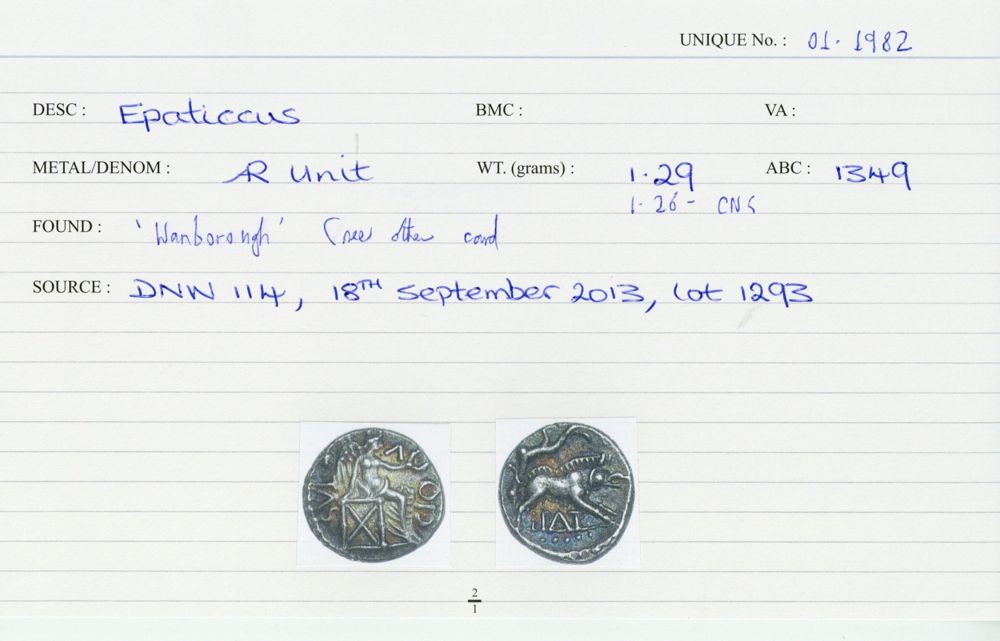 UNIQUE No. : 01. 1982
DESC : Epaticcus BMC : VA :
METAL/DENOM : AR Unit WT. (grams) : 1.29 ABC : 1349
1.26 - CNS
FOUND : 'Wanborough' (see other card
SOURCE : DNW 114, 18TH September 2013, Lot 1293
2
1